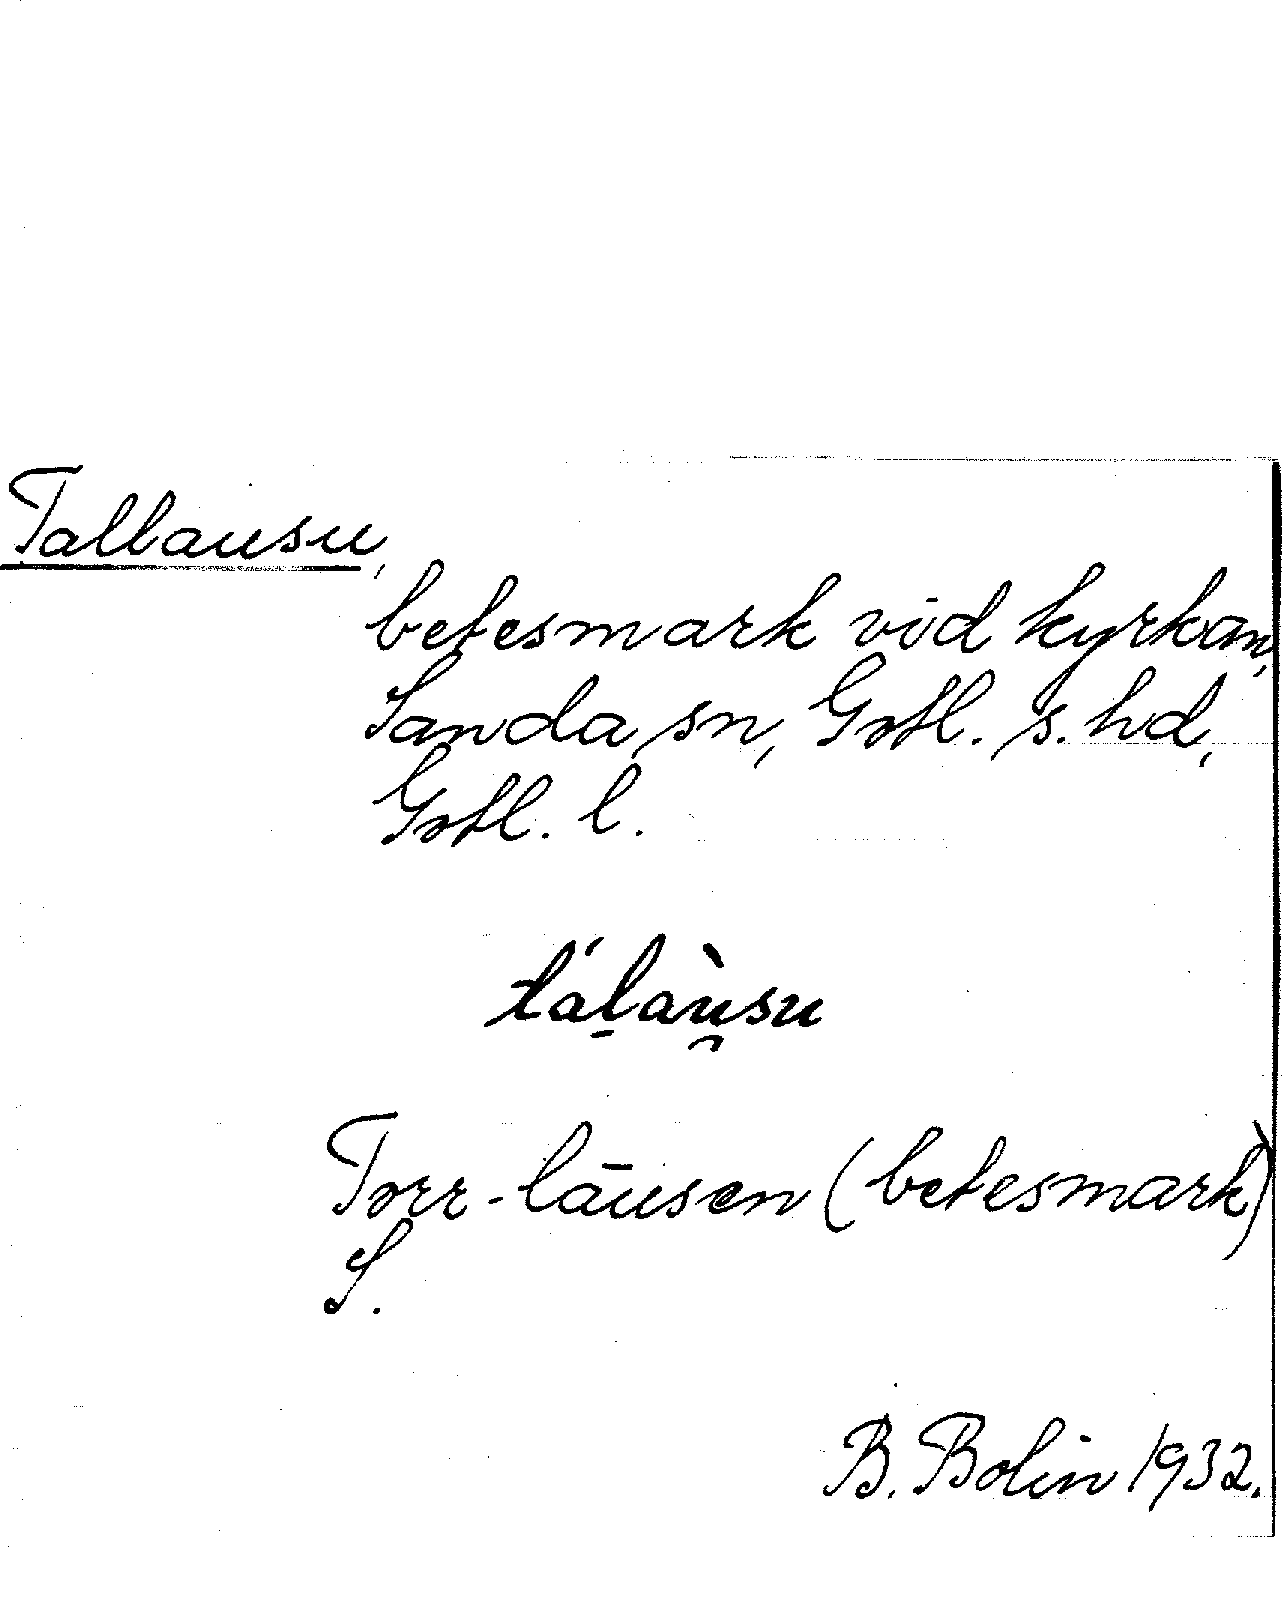 Tallausu,
betesmark vid kyrkan,
Sanda sn, Gotl. s. hd,
Gotl. l.
tá̈l̠àu̯su
Torr-lāusen (betesmark)
S.
B. Bolin 1932.